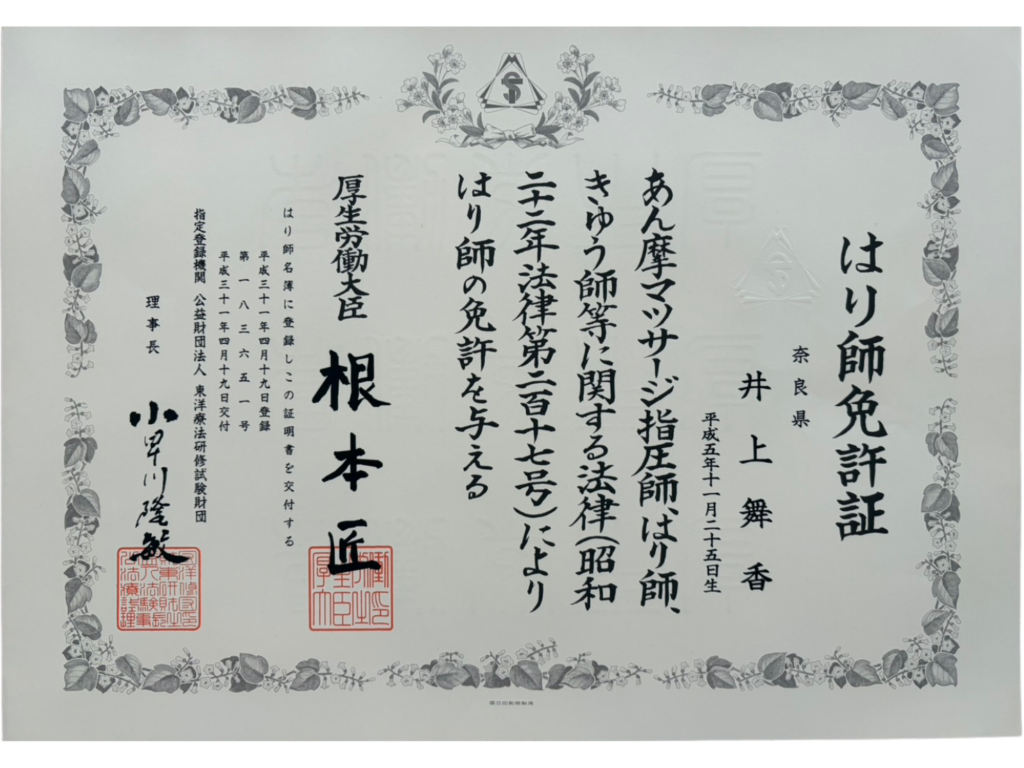 はり師免許証
奈良県
井上舞香
平成五年十一月二十五日生
あん摩マツサージ指圧師、はり師、
きゆう師等に関する法律（昭和
二十二年法律第二百十七号）により
はり師の免許を与える
厚生労働大臣 根本匠
はり師名簿に登録しこの証明書を交付する
平成三十一年四月十九日登録
第一八三六五一号
平成三十一年四月十九日交付
指定登録機関 公益財団法人 東洋療法研修試験財団
理事長 小早川隆敏